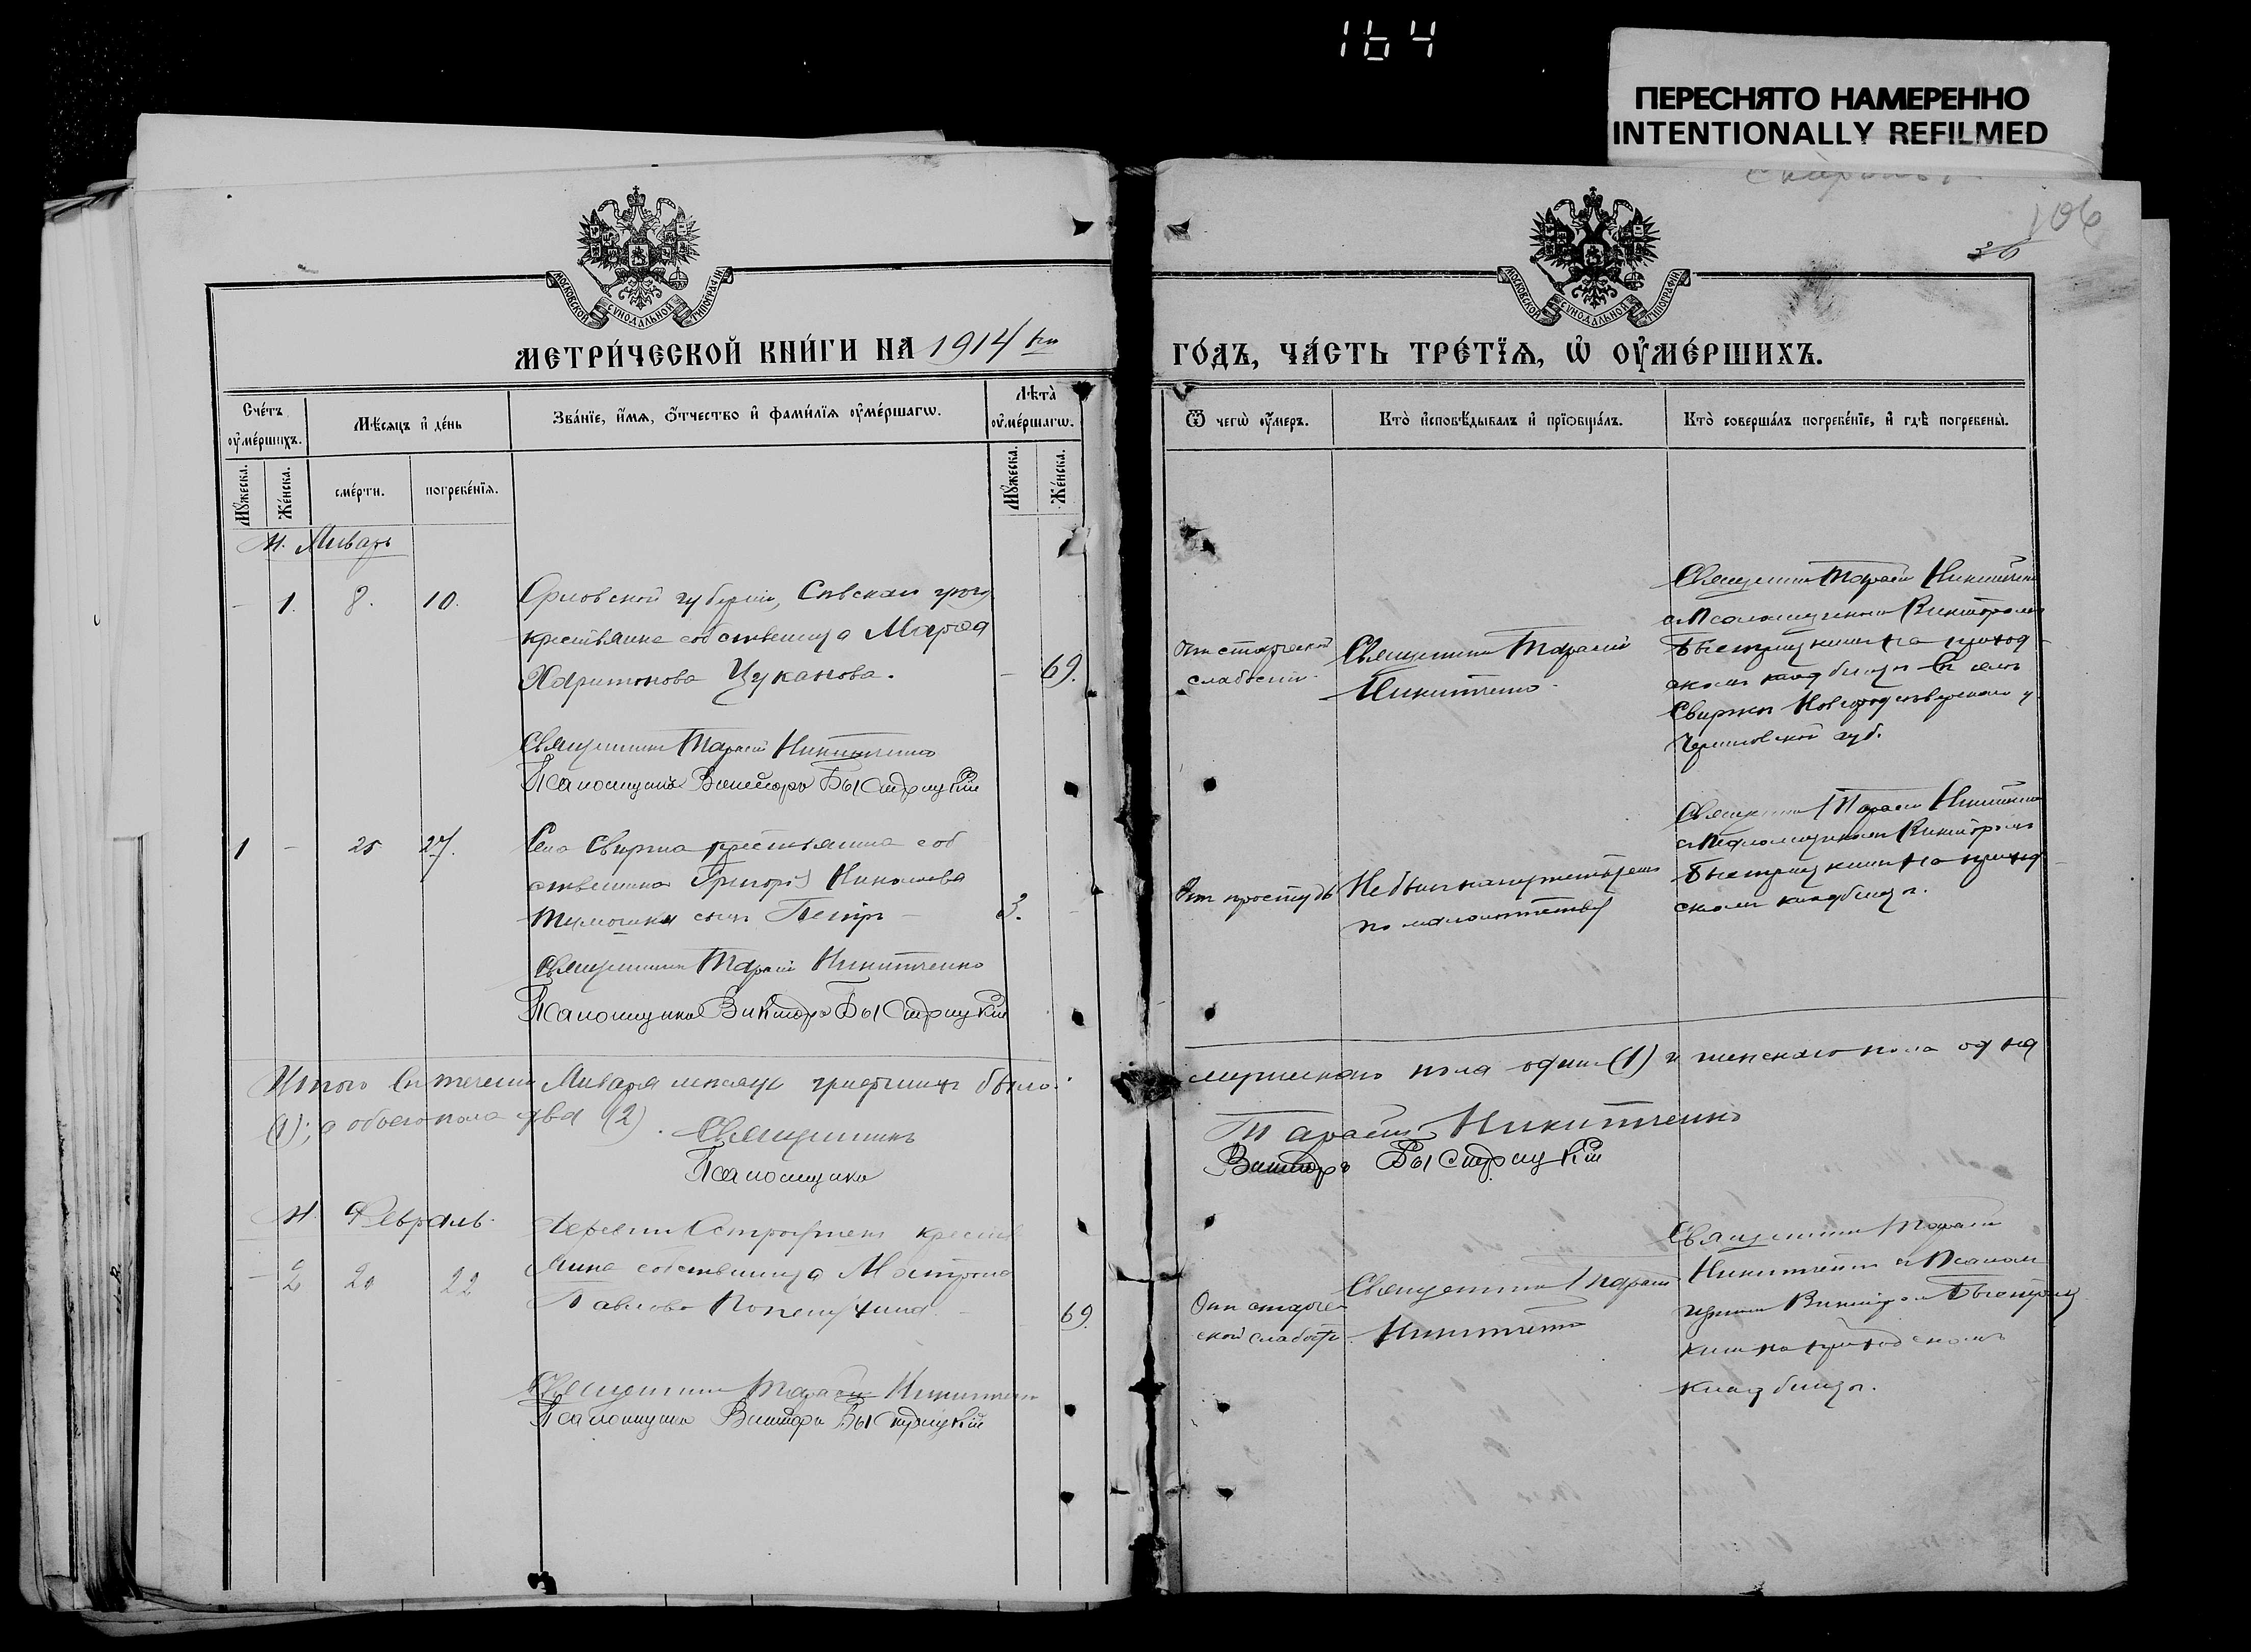 164
ПЕРЕСНЯТО НАМЕРЕННО
INTENTIONALLY REFILMED
106
36
МОСКОВСКОЙ СѴНОДАЛЬНОЙ ТИПОГРАФІИ
МОСКОВСКОЙ СѴНОДАЛЬНОЙ ТИПОГРАФІИ
МЕТРИ́ЧЕСКОЙ КНИ́ГИ НА 1914 й
ГО́ДЪ, ЧА́СТЬ ТРЕ́ТЇѦ, Ѡ҆ ОУ҆МЕ́РШИХЪ.
Сче́тъ оу҆ме́ршихъ.
Мѣ́сяцъ и҆ де́нь
Зва́нїе, и҆́мѧ, ѻ҆́тчество и҆ фами́лїѧ оу҆ме́ршагѡ.
Лѣ́та оу҆ме́ршагѡ.
Мꙋ́жеска.
Же́нска.
сме́рти.
погребе́нїѧ.
Мꙋ́жеска.
Же́нска.
Ѿ чегѡ̀ оу҆́меръ.
Кто̀ и҆сповѣ́дывалъ и҆ прїѡбща́лъ.
Кто̀ соверша́лъ погребе́нїе, и҆ гдѣ̀ погребены̀.
М. Январь
- 1. 8. 10.
Орловской губерніи, Сѣвскаго уѣзд.
крестьянка собственница Марфа
Харитонова Цуканова. - 69.
Священникъ Тарасій Никитченко
Псаломщикъ Викторъ Быстрицкій
Отъ старческой
слабости.
Священникъ Тарасій
Никитченко.
Священникъ Тарасій Никитченко
съ Псаломщикомъ Викторомъ
Быстрицкимъ на приход-
скомъ кладбищѣ въ селѣ
Свиржѣ Новгородсѣверскаго у.
Черниговской губ.
1 - 25 27.
Села Свиржа крестьянина соб
ственника Григорія Николаева
сынъ Петръ - 3.
Священникъ Тарасій Никитченко
Псаломщикъ Викторъ Быстрицкій
Отъ простуды
Не былъ
по малолѣтству
Священникъ Тарасій Никитченко
съ Псаломщикомъ Викторомъ
Быстрицкимъ на приход-
скомъ кладбищѣ.
Итого въ теченіи Января мѣсяца умершихъ было:
мужескаго пола одинъ (1) и женскаго пола одна
(1); а обоего пола два (2). Священникъ
Тарасій Никитченко
Псаломщикъ
Викторъ Быстрицкій
М. Февраль.
- 2 20 22
Деревни крестья
нина собственница Матрона
Павлова - 69.
Священникъ Тарасій Никитченко
Псаломщикъ Викторъ Быстрицкій
Отъ старче-
ской слабости.
Священникъ Тарасій
Никитченко
Священникъ Тарасій
Никитченко съ Псалом
щикомъ Викторомъ Быстриц
кимъ на приходскомъ
кладбищѣ.